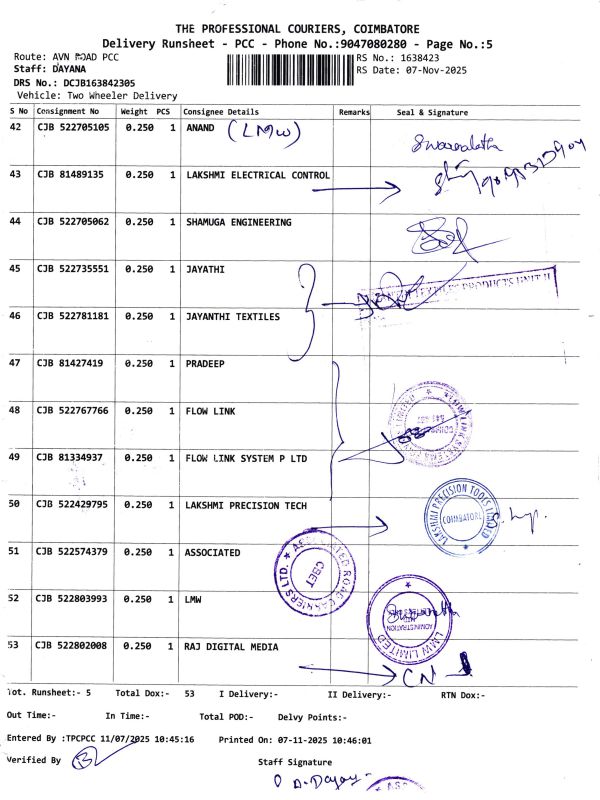 THE PROFESSIONAL COURIERS, COIMBATORE
Delivery Runsheet - PCC - Phone No.:9047080280 - Page No.:5
Route: AVN ROAD PCC RS No.: 1638423
Staff: DAYANA RS Date: 07-Nov-2025
DRS No.: DCJB163842305
Vehicle: Two Wheeler Delivery
S No Consignment No Weight PCS Consignee Details Remarks Seal & Signature
42 CJB 522705105 0.250 1 ANAND (LMW)
43 CJB 81489135 0.250 1 LAKSHMI ELECTRICAL CONTROL
44 CJB 522705062 0.250 1 SHAMUGA ENGINEERING
45 CJB 522735551 0.250 1 JAYATHI
PRODUCTS UNIT II
46 CJB 522781181 0.250 1 JAYANTHI TEXTILES
47 CJB 81427419 0.250 1 PRADEEP
48 CJB 522767766 0.250 1 FLOW LINK
49 CJB 81334937 0.250 1 FLOW LINK SYSTEM P LTD
50 CJB 522429795 0.250 1 LAKSHMI PRECISION TECH
LAKSHMI PRECISION TOOLS LIMITED
COIMBATORE
51 CJB 522574379 0.250 1 ASSOCIATED
ASSOCIATED ROAD CARRIERS LTD.
CBET
52 CJB 522803993 0.250 1 LMW
ADMINISTRATION
LMW LIMITED
53 CJB 522802008 0.250 1 RAJ DIGITAL MEDIA
Tot. Runsheet:- 5 Total Dox:- 53 I Delivery:- II Delivery:- RTN Dox:-
Out Time:- In Time:- Total POD:- Delvy Points:-
Entered By :TPCPCC 11/07/2025 10:45:16 Printed On: 07-11-2025 10:46:01
Verified By Staff Signature